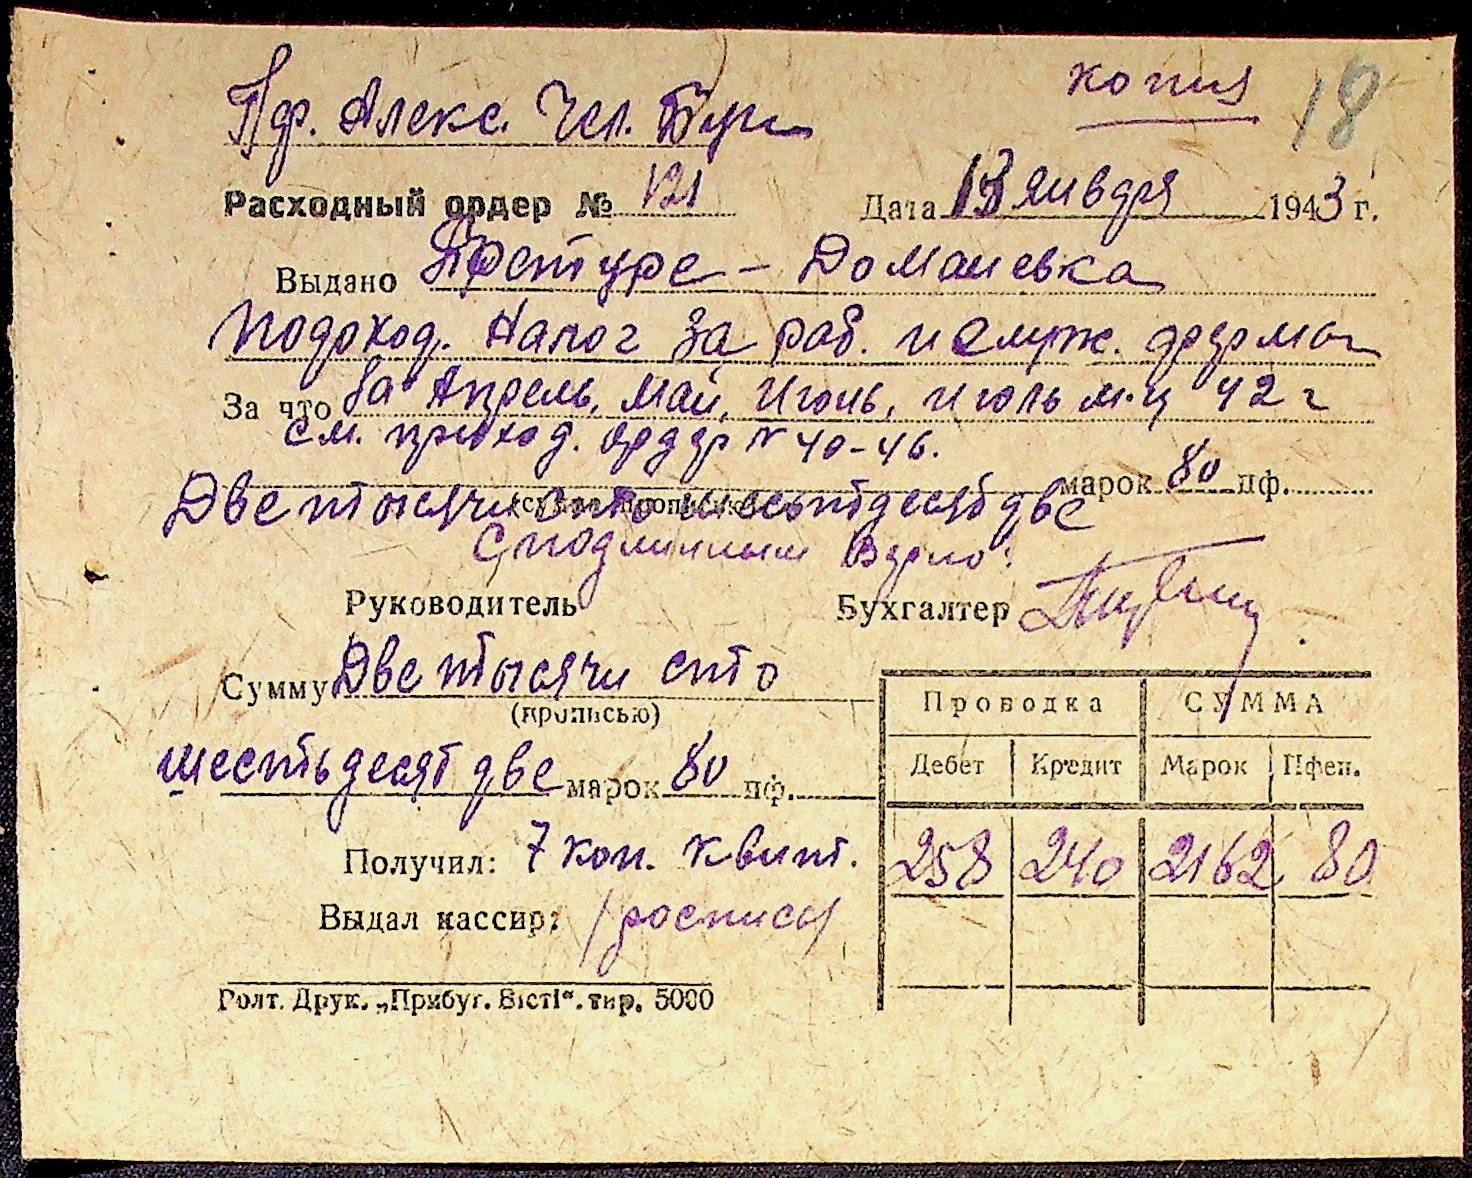 копия 18
Пф. Алекс. Чел. Буг
Расходный ордер № 121 Дата 13 января 1943 г.
Выдано Претуре – Доманевка
Подоход. Налог за раб. и служ. фермы
За что за Апрель, Май, Июнь, июль м-ц 42 г
см. приход. ордер N 40-46.
марок 80 пф.
(сумма прописью)
Две тысячи сто шестьдесят две
С подлинным Верно:
Руководитель Бухгалтер
Сумму Две тысячи сто
(прописью)
шестьдесят две марок 80 пф.
Проводка СУММА
Дебет Кредит Марок Пфен.
258 240 2162 80
Получил: 7 коп. квит.
Выдал кассир: /роспись/
Голт. Друк. „Прибуг. Вісті“. тир. 5000